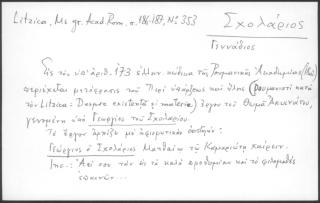 Litzica, Ms gr. Acad. Rom. σ. 186-187, Nº 353
Σχολάριος
Γεννάδιος
Εἰς τὸν ὑπ' ἀριθ. 173 ἑλλην. κώδικα τῆς Ρουμανικῆς Ἀκαδημίας
περιέχεται μετάφρασις τοῦ Περὶ ὑπάρξεως καὶ ὕλης (ρουμανιστὶ κατὰ
τὸν Litzica: Despre existență și materia) ἔργου τοῦ Θωμᾶ Ἀκυνάτου,
γενομένη ὑπὸ Γεωργίου τοῦ Σχολαρίου.
Τὸ ἔργον ἀρχίζει μὲ ἀφιερωτικὴν ἐπιστολήν:
Γεώργιος ὁ Σχολάριος Ματθαίῳ τῷ Καμαριώτῃ χαίρειν.
Inc.: Ἀεί σου τὴν εἰς τὰ καλὰ προθυμίαν καὶ τὸ φιλομαθὲς
ἐπαινῶν...